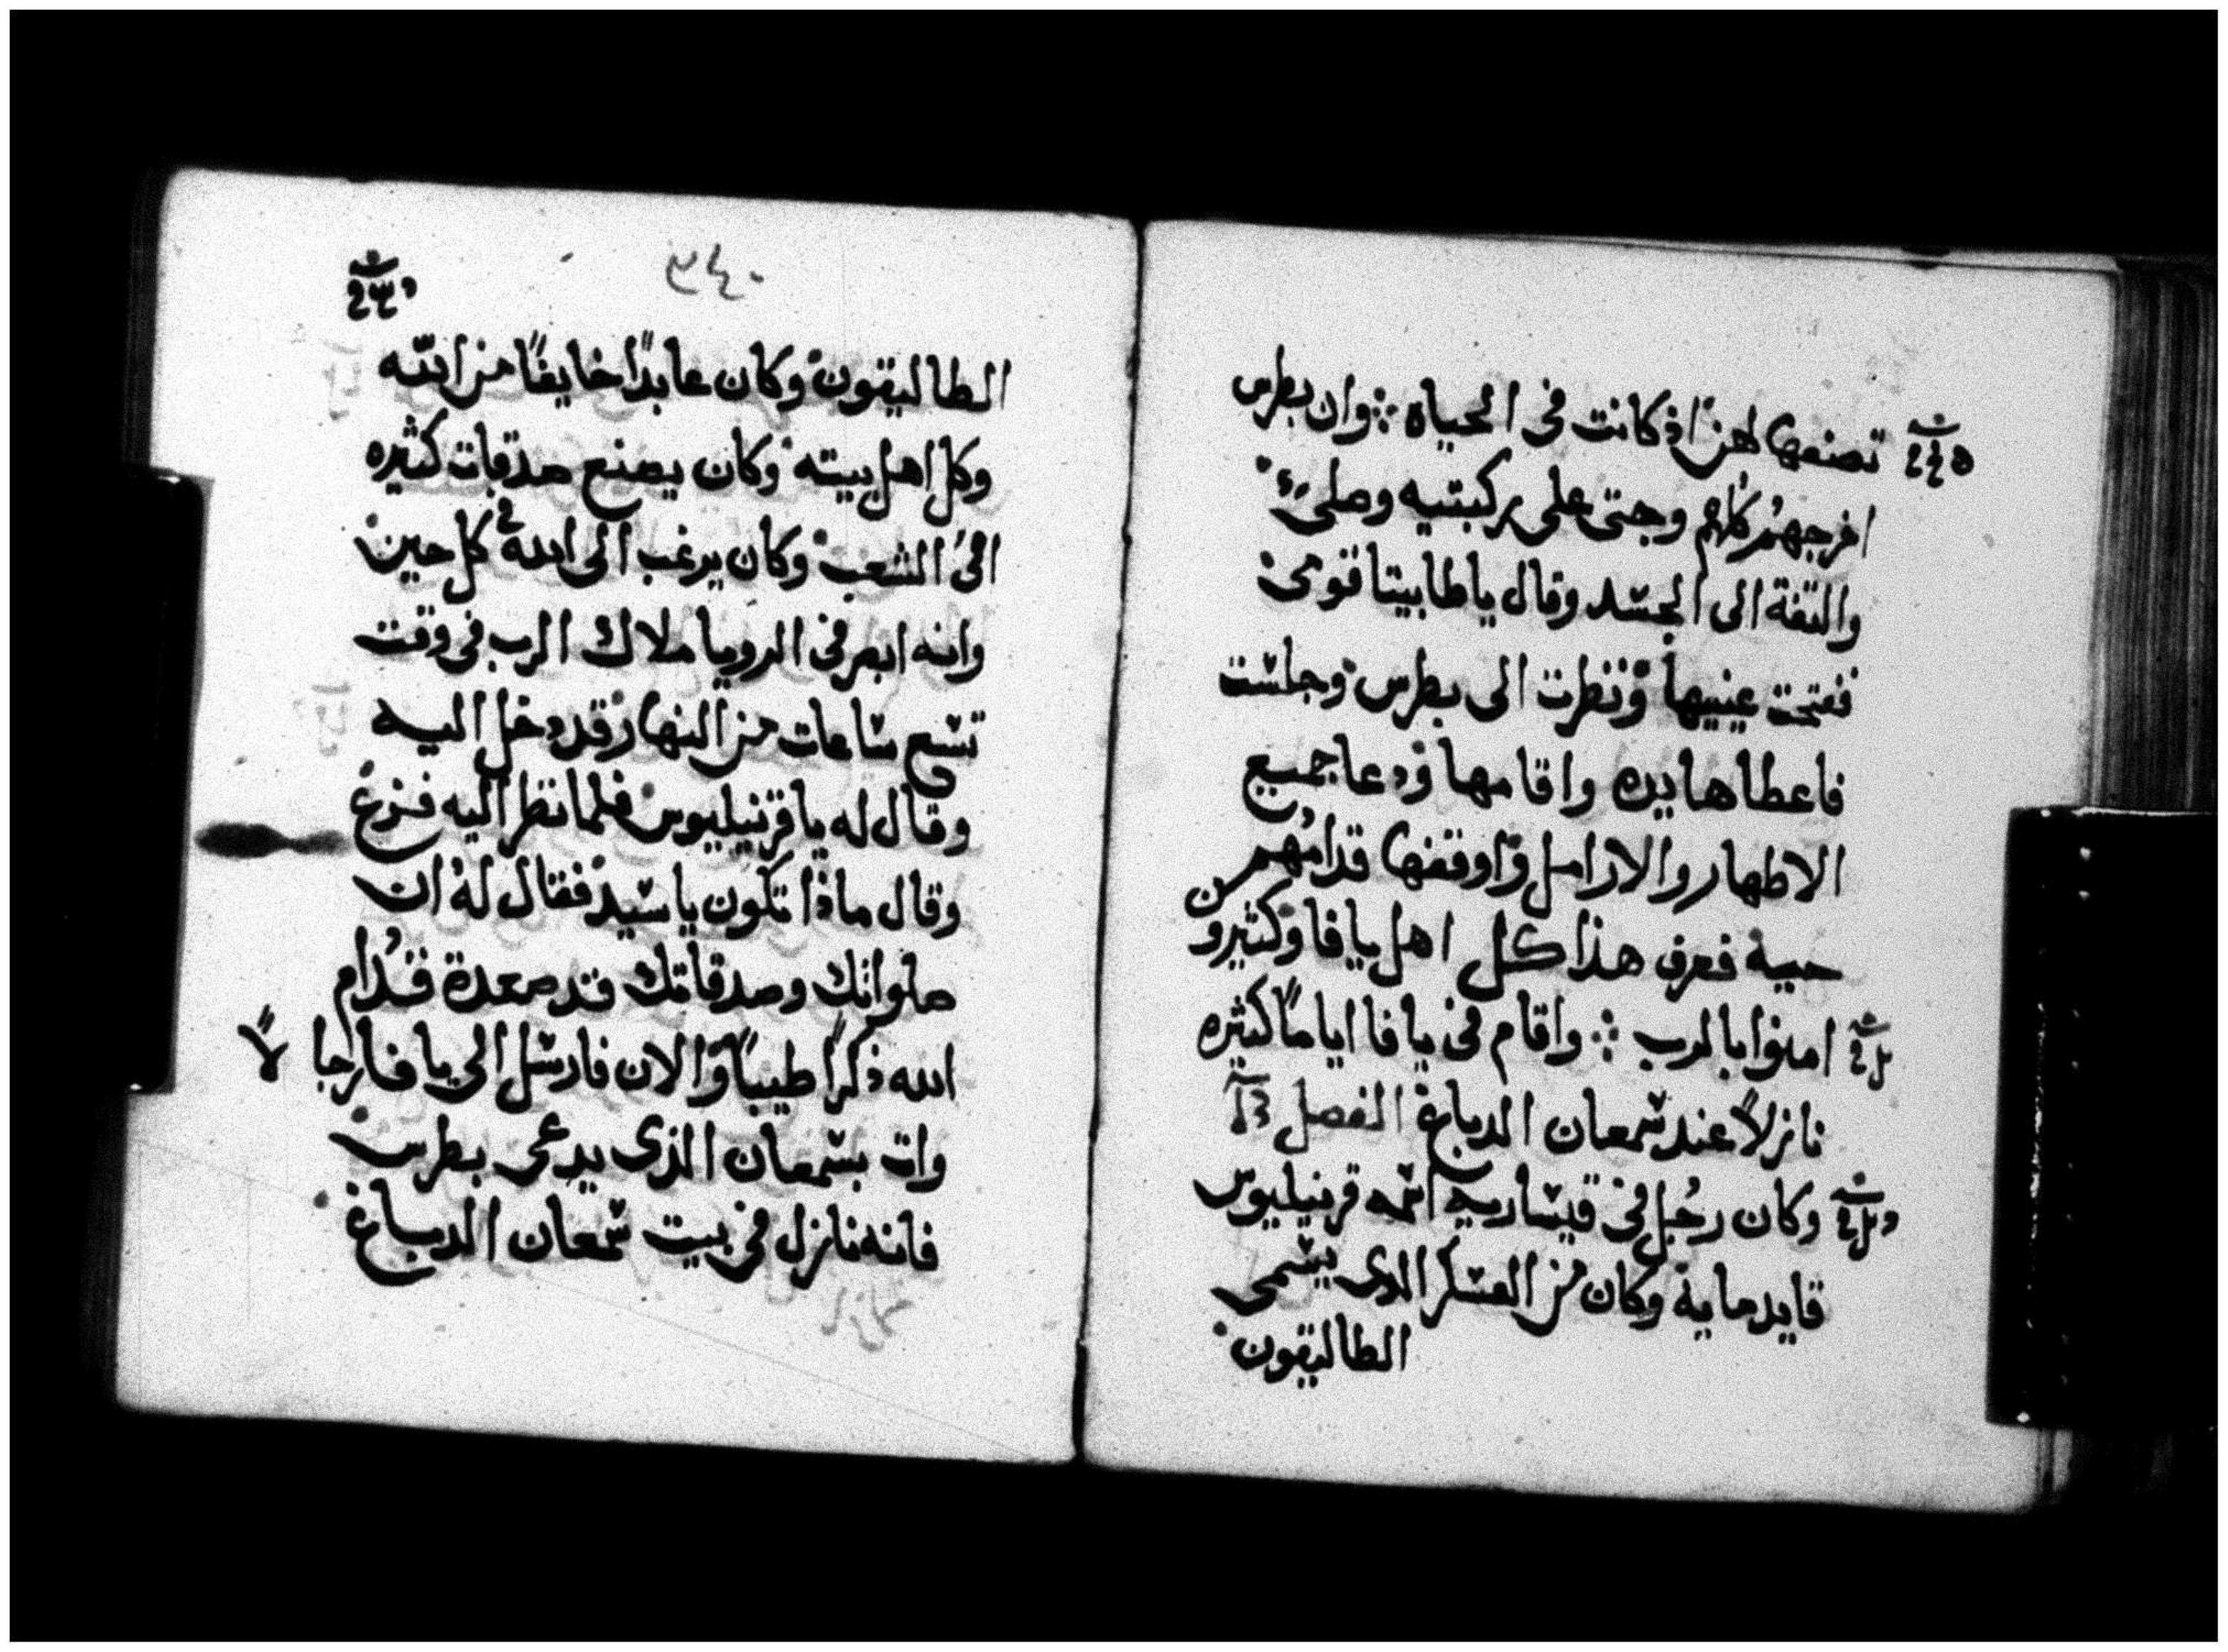 تصنعها لهن اذ كانت فى الحياه ∴ وان بطرس
اخرجهم كلهم وجتى على ركبتيه وصلى
والتفة الى الجسد وقال يا طابيتا قومى
ففتحت عينيها ونظرت الى بطرس وجلست
فاعطاها يده واقامها ودعا جميع
الاطهار والارامل واوقفها قدامهم
حيية فعرف هذا كل اهل يافا وكثيرون
امنوا بالرب ∴ واقام فى يافا اياماً كثيره
نازلاً عند شمعان الدباغ الفصل
وكان رجل فى قيسارية اسمه قرنيليوس
قايد ماية وكان من العسكر الدى يسمى
الطاليقون
٣٤٠
الطاليقون وكان عابداً خايفاً من الله
وكل اهل بيته وكان يصنع صدقات كثيره
فى الشعب وكان يرغب الى الله فى كل حين
وانه ابصر فى الرويا ملاك الرب فى وقت
تسع ساعات من النهار قد دخل اليه
وقال له يا قرنيليوس فلما نظر اليه فزع
وقال ماذا تكون يا سيد فقال له ان
صلواتك وصدقاتك قد صعدة قدام
الله ذكراً طيباً والان فارسل الى يافا رجالاً
وات بشمعان الذى يدعى بطرس
فانه نازل فى بيت شمعان الدباغ